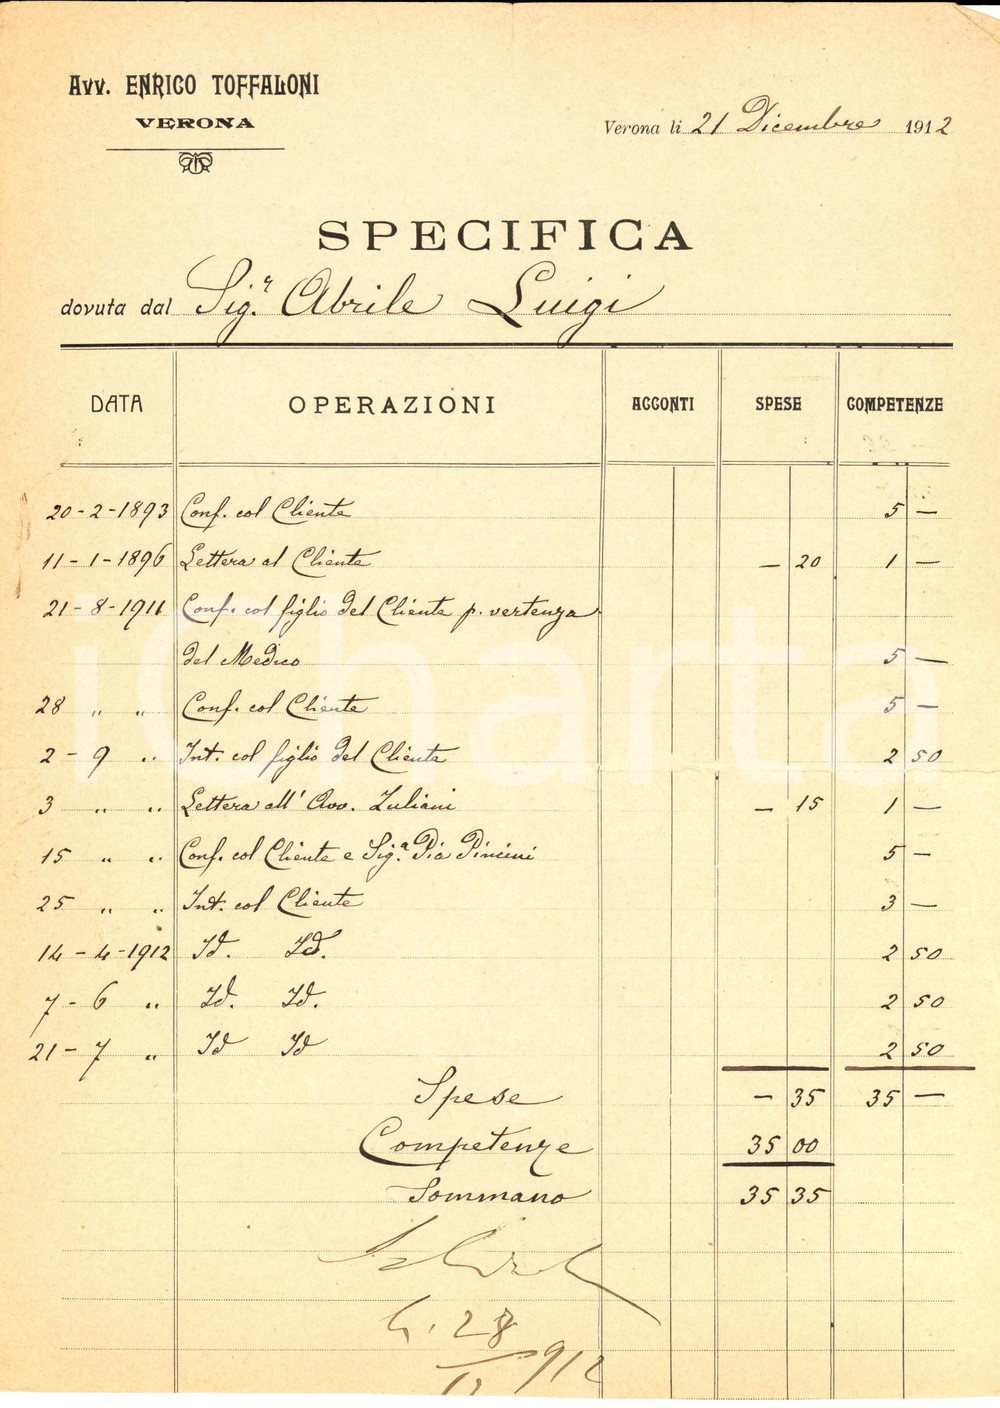 Avv. ENRICO TOFFALONI
VERONA
Verona li 21 Dicembre 1912
SPECIFICA
dovuta dal Sig.r Abrile Luigi
DATA OPERAZIONI ACCONTI SPESE COMPETENZE
20-2-1893 Conf. col Cliente 5 —
11-1-1896 Lettera al Cliente — 20 1 —
21-8-1911 Conf. col figlio del Cliente p. vertenza
del Medico 5 —
28 " " Conf. col Cliente 5 —
2-9 " Int. col figlio del Cliente 2 50
3 " " Lettera all' Avv. Zuliani — 15 1 —
15 " " Conf. col Cliente e Sig.a Pia Pincini 5 —
25 " " Int. col Cliente 3 —
14-4-1912 Id. Id. 2 50
7-6 " Id. Id. 2 50
21-7 " Id Id 2 50
Spese — 35 35 —
Competenze 35 00
Sommano 35 35
28
12 912
iCharta